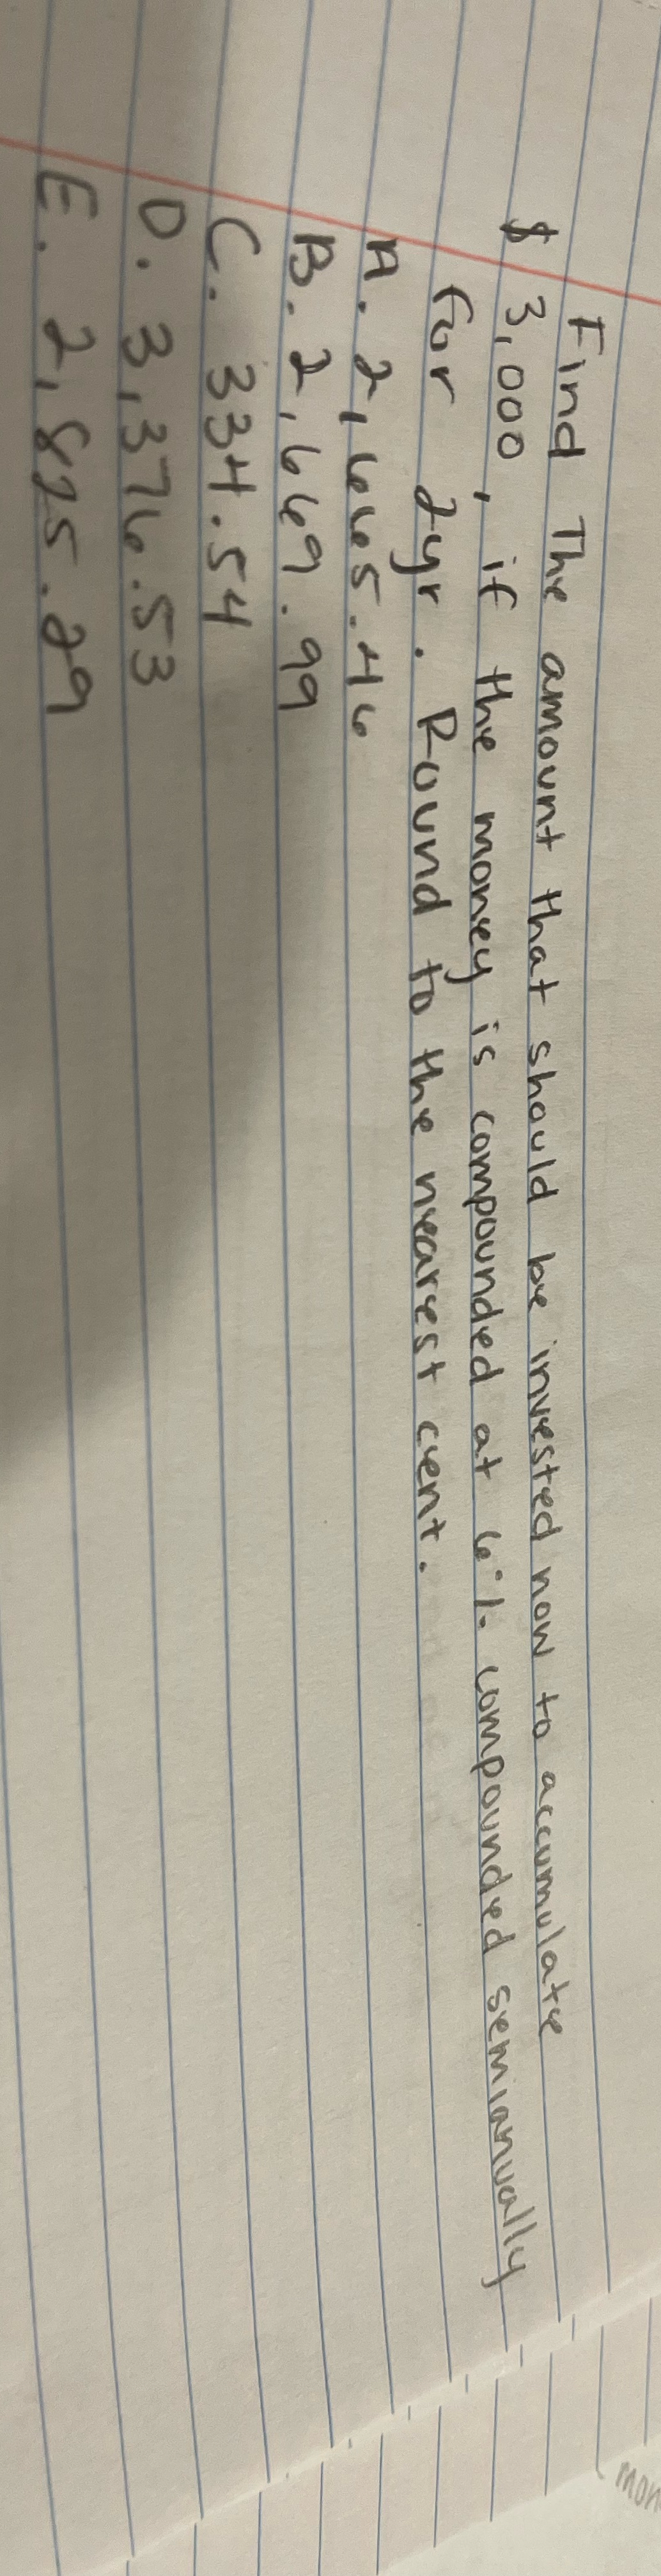 Find The amount that should be invested now to accumulate
$ 3,000, if the money is compounded at 6% compounded semianually
for 2yr. Round to the nearest cent.
A. 2,665.46
B. 2,669.99
C. 334.54
D. 3,376.53
E. 2,825.29
mon